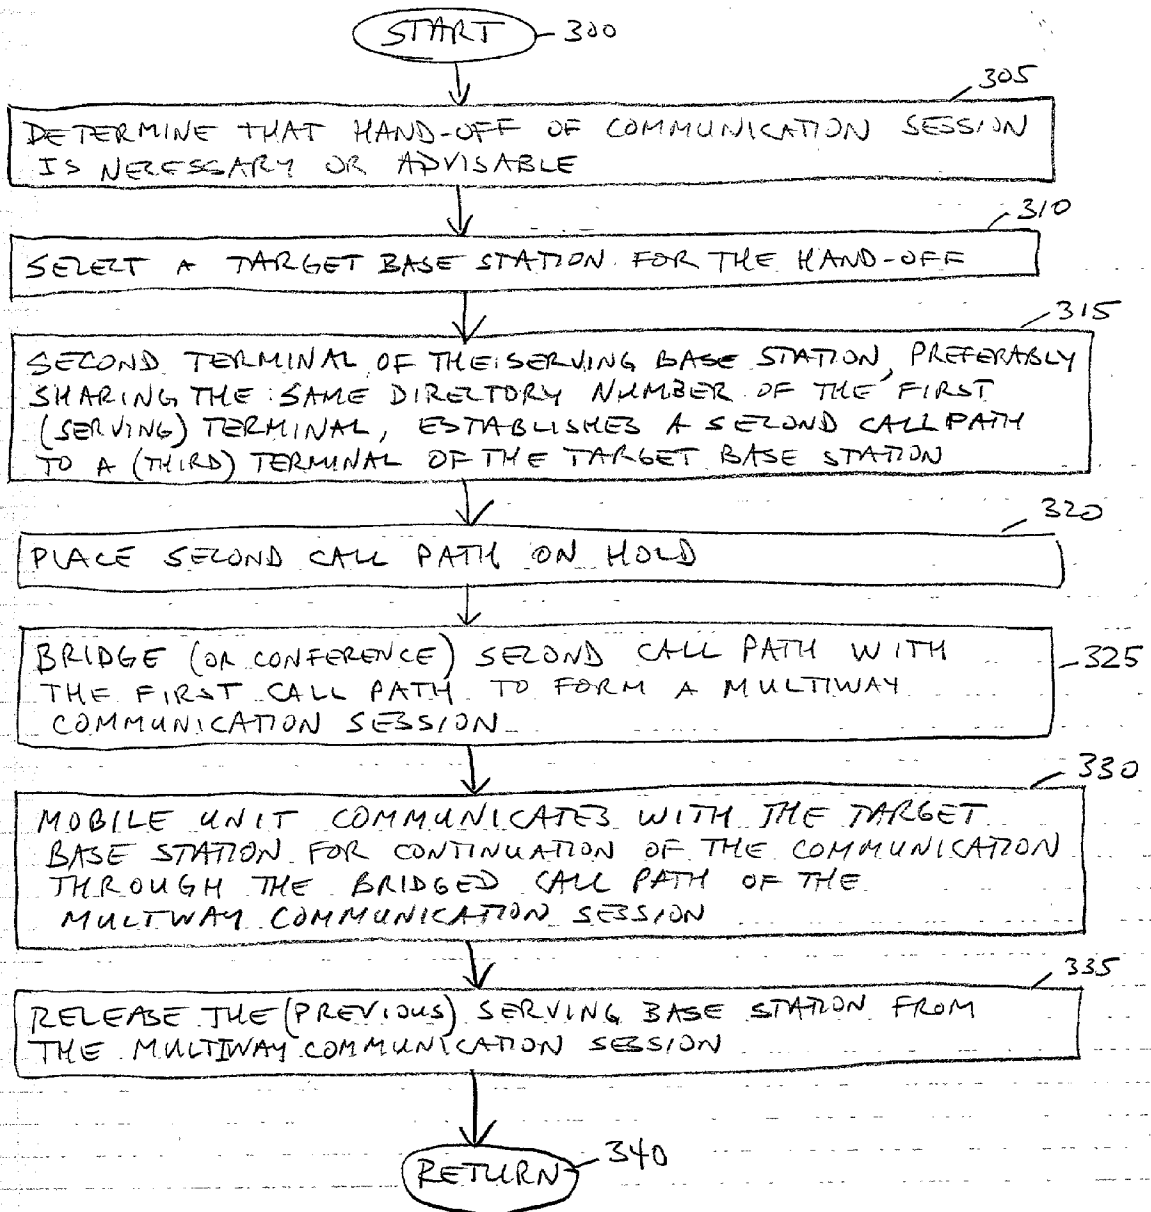 START 300
305
DETERMINE THAT HAND-OFF OF COMMUNICATION SESSION
IS NECESSARY OR ADVISABLE
310
SELECT A TARGET BASE STATION FOR THE HAND-OFF
315
SECOND TERMINAL OF THE SERVING BASE STATION, PREFERABLY
SHARING THE SAME DIRECTORY NUMBER OF THE FIRST
(SERVING) TERMINAL, ESTABLISHES A SECOND CALL PATH
TO A (THIRD) TERMINAL OF THE TARGET BASE STATION
320
PLACE SECOND CALL PATH ON HOLD
BRIDGE (OR CONFERENCE) SECOND CALL PATH WITH
THE FIRST CALL PATH TO FORM A MULTIWAY
COMMUNICATION SESSION
325
330
MOBILE UNIT COMMUNICATES WITH THE TARGET
BASE STATION FOR CONTINUATION OF THE COMMUNICATION
THROUGH THE BRIDGED CALL PATH OF THE
MULTWAY COMMUNICATION SESSION
335
RELEASE THE (PREVIOUS) SERVING BASE STATION FROM
THE MULTIWAY COMMUNICATION SESSION
RETURN 340